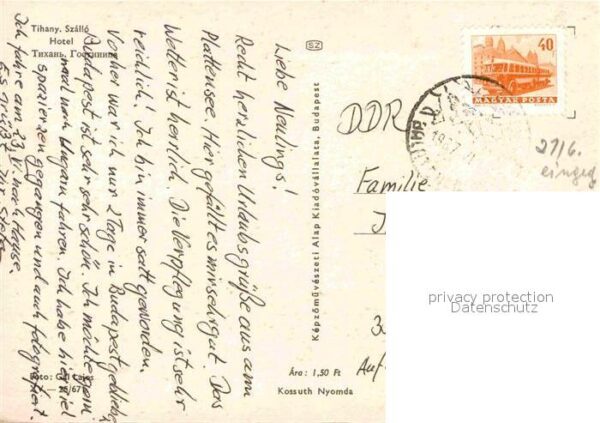 Tihany. Szálló
Hotel
Тихань. Гостиница
SZ
Liebe Neulings!
Recht herzlichen Urlaubsgrüße aus am
Plattensee. Hier gefällt es mir sehr gut. Das
Wetter ist herrlich. Die Verpflegung ist sehr
reichlich. Ich bin immer satt geworden.
Vorher war ich nur 2 Tage in Budapest geblieben
Budapest ist sehr sehr schön. Ich möchte gern
nach Ungarn fahren. Ich habe hier viel
spazieren gegangen und auch fotografiert.
Ich fahre am 23. V. nach Hause.
Es grüßt
Foto:
Képzőművészeti Alap Kiadóvállalata, Budapest
Áro: 1,50 Ft
Kossuth Nyomda
40
MAGYAR POSTA
21/6.
eingeg
DDR
Familie
Auf
privacy protection
Datenschutz